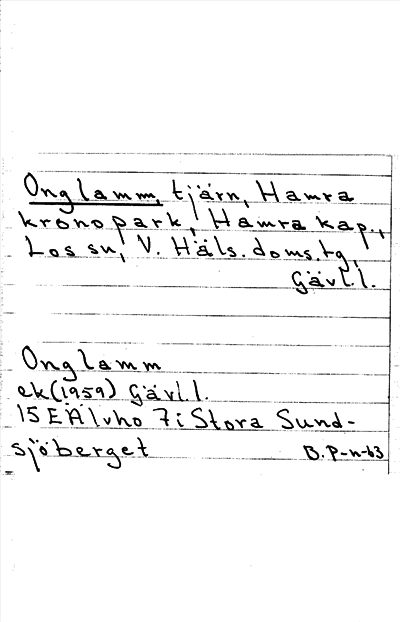 Onglamm, tjärn, Hamra
kronopark, Hamra kap.,
Los sn, V. Häls. doms.tg,
Gävl.l.
Onglamm
ek(1959) Gävl.l.
15 E Älvho 7i Stora Sund-
sjöberget B.P-n-63